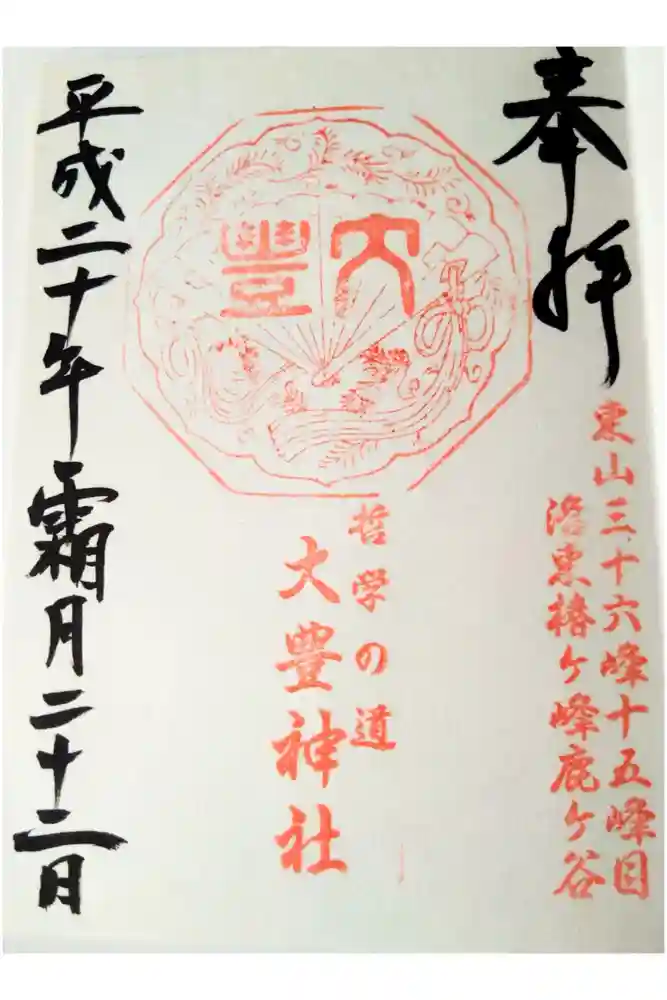 奉拝
東山三十六峰十五峰目
洛東椿ケ峰鹿ケ谷
大豊
哲学の道
大豊神社
平成二十年霜月二十二日